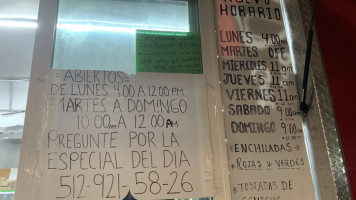 ABIERTOS
DE LUNES 4:00 A 12:00 PM
MARTES A DOMINGO
10:00 AM A 12:00 AM
PREGUNTE POR LA
ESPECIAL DEL DIA
512-921-58-26
HORARIO
LUNES 4:00
MARTES OFF
MIERCOLES 11 am
JUEVES 11 am
VIERNES 11 am
SABADO 9:00
DOMINGO 9:00
ENCHILADAS
ROJAS y VERDES
TOSTADAS DE